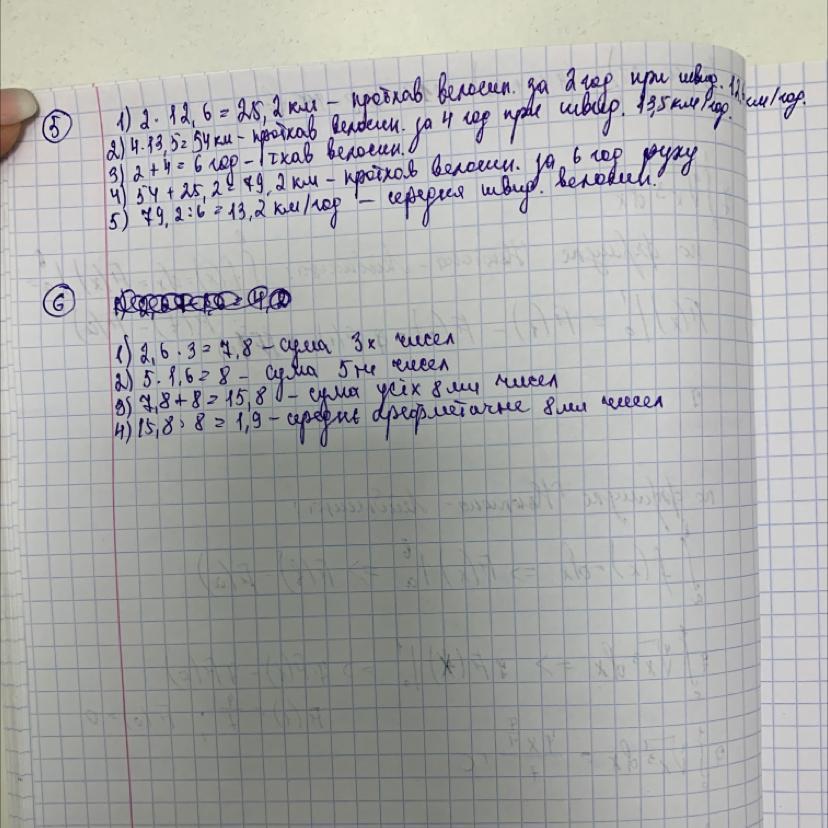 5
1) 2 · 12,6 = 25,2 км – проїхав велосип. за 2 год при швид. 12,6 км/год.
2) 4 · 13,5 = 54 км – проїхав велосип. за 4 год при швид. 13,5 км/год.
3) 2 + 4 = 6 год – їхав велосип.
4) 54 + 25,2 = 79,2 км – проїхав велосип. за 6 год руху
5) 79,2 : 6 = 13,2 км/год – середня швид. велосип.
6
1) 2,6 · 3 = 7,8 – сума 3х чисел
2) 5 · 1,6 = 8 – сума 5ти чисел
3) 7,8 + 8 = 15,8 – сума усіх 8ми чисел
4) 15,8 : 8 = 1,9 – середнє арефметичне 8ми чисел